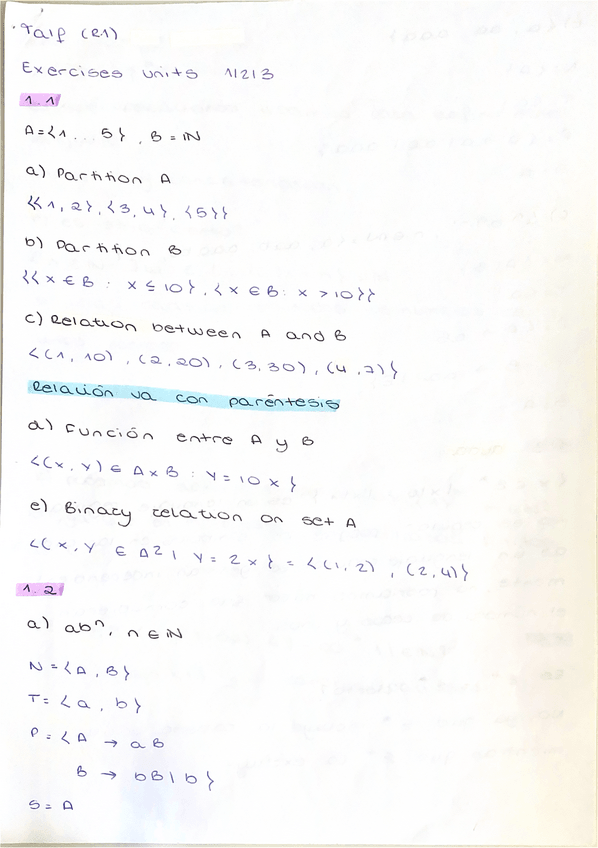 · TaIf (R1)
Exercises units 1/2/3
1.1
A={1...5}, B=ℕ
a) Partition A
{{1,2},{3,4},{5}}
b) Partition B
{{x ∈ B : x ≤ 10},{x ∈ B: x > 10}}
c) Relation between A and B
{(1,10),(2,20),(3,30),(4,7)}
Relación va con paréntesis
d) Función entre A y B
{(x,y) ∈ A x B : y = 10x}
e) Binary relation on set A
{(x,y ∈ A2 | y = 2x} = {(1,2),(2,4)}
1.2
a) abⁿ, n ∈ ℕ
N = {A,B}
T = {a,b}
P = {A → aB
B → bB|b}
S = A